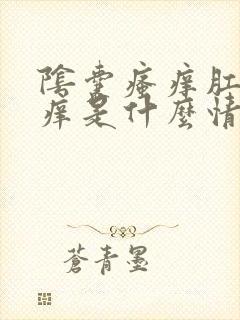 陰囊瘙癢肛
癢是什麼情
蒼青墨